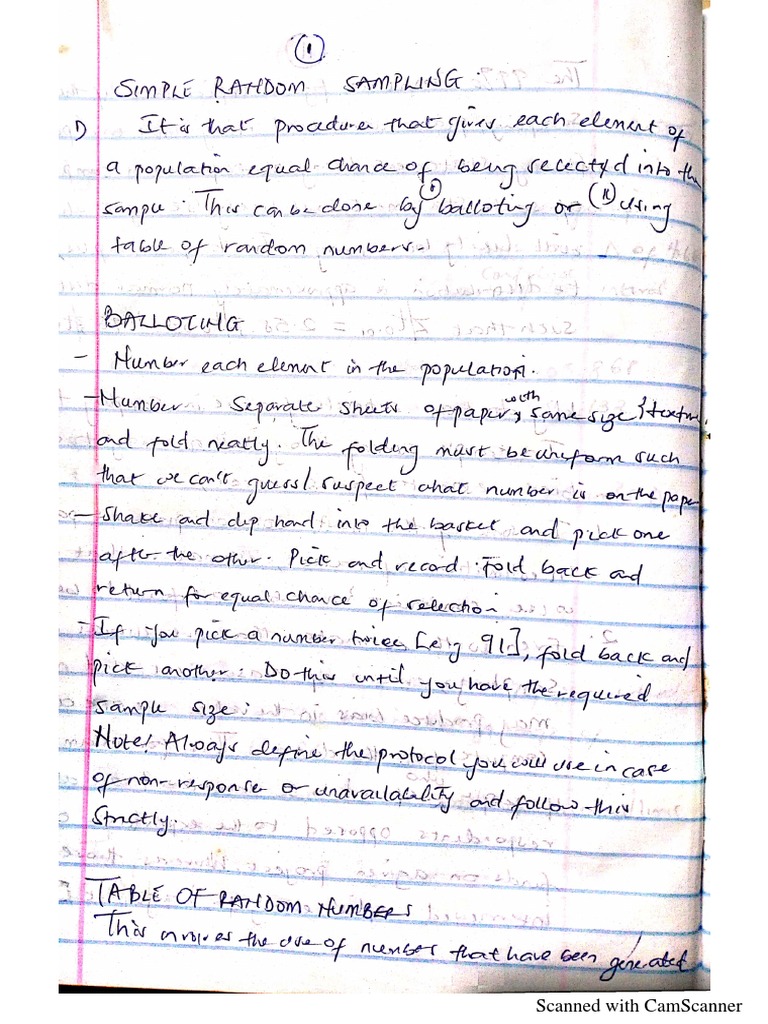 1
SIMPLE RANDOM SAMPLING
1) It is that procedure that gives each element of
a population equal chance of being selected into the
sample. This can be done by (i) balloting or (ii) using
table of random numbers.
BALLOTING
- Number each element in the population.
- Number separate sheets of paper, with same size & texture
and fold neatly. The folding must be uniform such
that we can't guess/suspect what number is on the paper
- Shake and dip hand into the basket and pick one
after the other. Pick and record. Fold back and
return for equal chance of selection
- If you pick a number twice [e.g 91], fold back and
pick another. Do this until you have the required
sample size.
Note! Always define the protocol you will use in case
of non-response or unavailability and follow this
strictly.
TABLE OF RANDOM NUMBERS
This involves the use of number that have been generated
Scanned with CamScanner